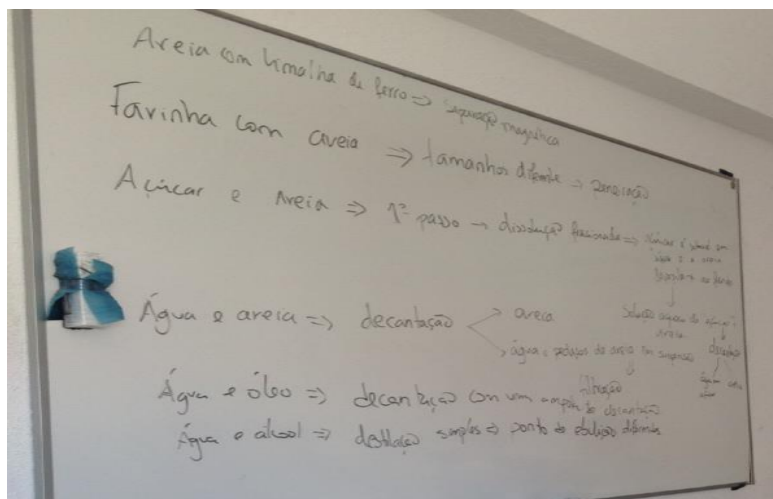 Areia com limalha de ferro => separação magnética
Farinha com aveia => tamanhos diferente => peneiração
Açúcar e Areia => 1º passo → dissolução fracionada => açúcar é solúvel em
água e a areia
Solução aquosa de açúcar e
areia
Água e areia => decantação
areia
água e pedaços de areia em suspensão
filtração
Água e óleo => decantação com um ampola de decantação
Água e álcool => destilação simples => ponto de ebulição diferentes